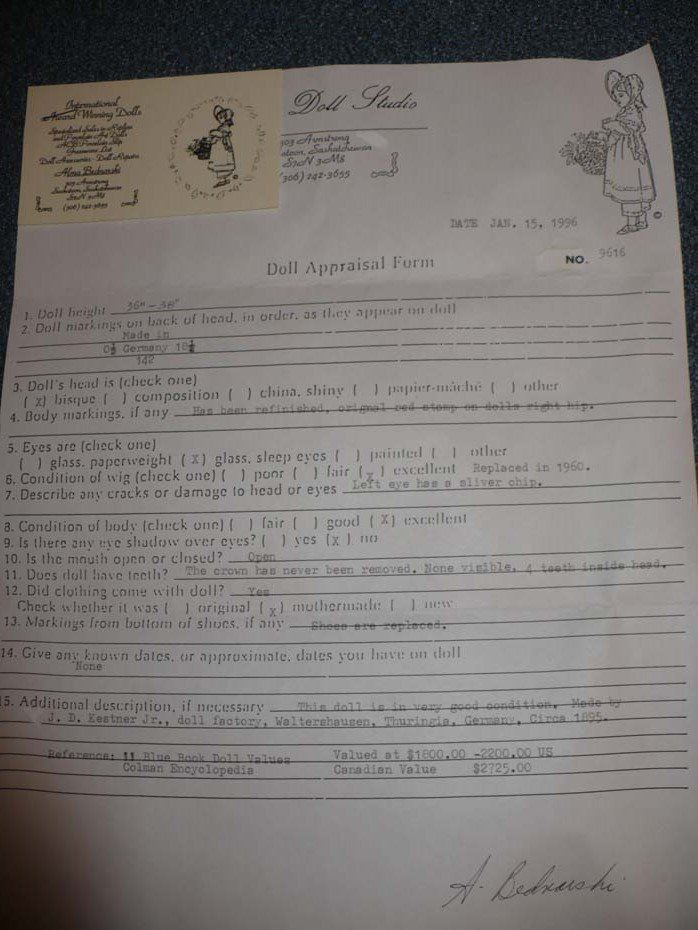 International
Award Winning Dolls
Specialized Sales in Resten
and Porcelain Art Dolls
Porcelain Slip
Greenware List
Doll Accessories - Doll Repairs
Alma Bednarski
303 Armstrong
Saskatoon, Saskatchewan
S7N 3M8
(306) 242-3655
Doll Studio
303 Armstrong
atoon, Saskatchewan
S7N 3M8
(306) 242-3655
DATE JAN. 15, 1996
Doll Appraisal Form
NO. 9616
1. Doll height 36" - 38"
2. Doll markings on back of head, in order, as they appear on doll
Made in
Germany
142
3. Doll's head is (check one)
(x) bisque ( ) composition ( ) china, shiny ( ) papier-mâché ( ) other
4. Body markings, if any Has been refinished, orignal red stamp on dolls right hip.
5. Eyes are (check one)
( ) glass, paperweight (X) glass, sleep eyes ( ) painted ( ) other
6. Condition of wig (check one) ( ) poor ( ) fair (x) excellent Replaced in 1960.
7. Describe any cracks or damage to head or eyes Left eye has a sliver chip.
8. Condition of body (check one) ( ) fair ( ) good (X) excellent
9. Is there any eye shadow over eyes? ( ) yes (x) no
10. Is the mouth open or closed? Open
11. Does doll have teeth? The crown has never been removed. None visible, 4 teeth inside head.
12. Did clothing come with doll? Yes
Check whether it was ( ) original (x) mothermade ( ) new
13. Markings from bottom of shoes, if any Shoes are replaced.
14. Give any known dates, or approximate, dates you have on doll
None
15. Additional description, if necessary This doll is in very good condition. Made by
J. D. Kestner Jr., doll factory, Waltershausen, Thuringia, Germany, Circa 1895.
Reference: 11 Blue Book Doll Values Valued at $1800.00 -2200.00 US
Colman Encyclopedia Canadian Value $2725.00
A. Bednarski